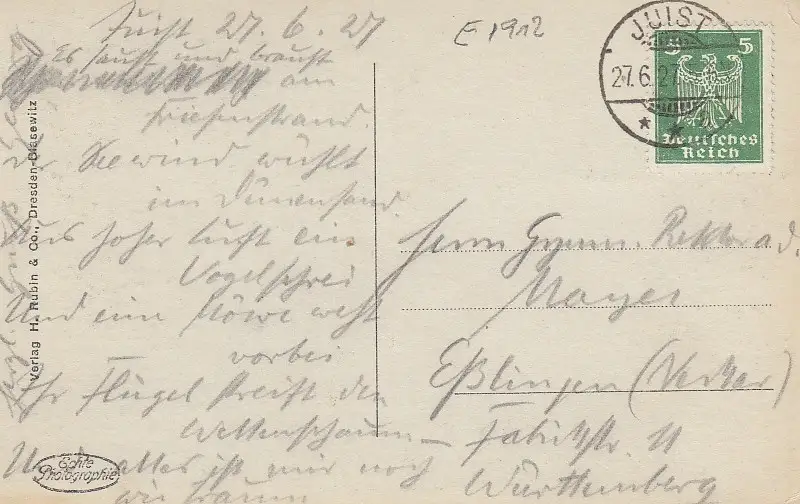 Juist 27.6.27
Es saust und braust
am
Friesenstrand.
Der Seewind wühlt
im Dünensand
Aus hoher Luft ein
Vogelschrei
Und eine Möwe weht
vorbei
Ihr Flügel streift den
Wellenschaum –
Und alles ist mir noch
wie Traum
E 1912
JUIST
27.6.27
5 5
Deutsches
Reich
Herrn Gymn. Rektor a.d.
Mayer
Eßlingen (Neckar)
Fabrikstr. 11
Württemberg
Verlag H. Rubin & Co., Dresden-Blasewitz
Echte
Photographie